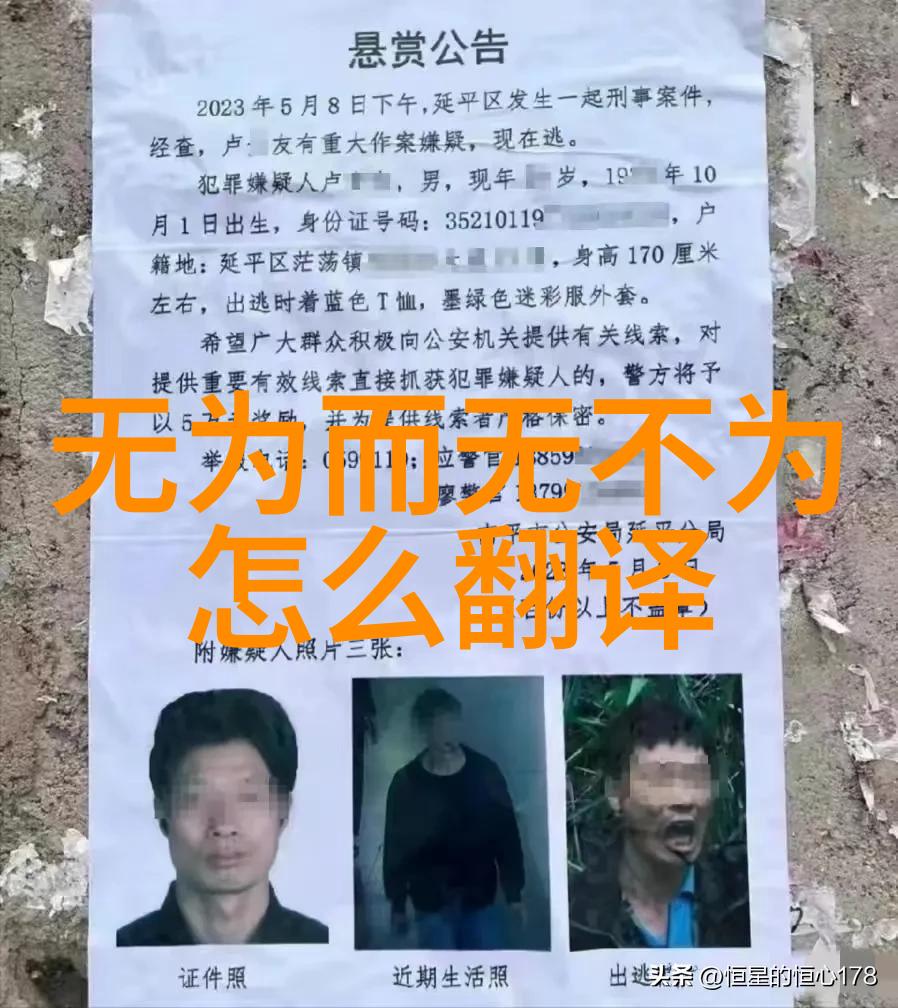 悬赏公告
2023年5月8日下午,延平区发生一起刑事案件,
经查,卢 友有重大作案嫌疑,现在逃。
犯罪嫌疑人卢 ,男,现年 岁,19 年10
月1日出生,身份证号码:35210119 ,户
籍地:延平区茫荡镇 ,身高170厘米
左右,出逃时着蓝色T恤,墨绿色迷彩服外套。
希望广大群众积极向公安机关提供有关线索,对
提供重要有效线索直接抓获犯罪嫌疑人的,警方将予
以5 奖励,并为提供线索者严格保密。
无为而无不为
举 电话:059 110;应警官 3859
廖警官 379
平 公安局延平分局
怎么翻译
年5月
以上不盖章)
附嫌疑人照片三张:
证件照
近期生活照
出逃
头条 @恒星的恒心178